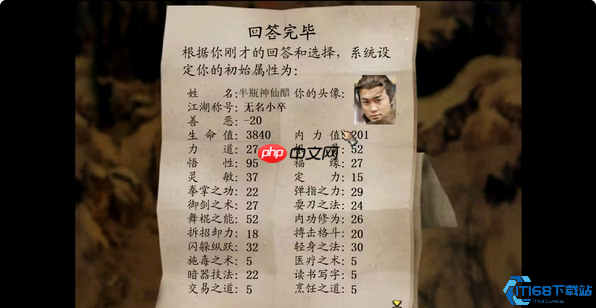 回答完毕
根据你刚才的回答和选择，系统设
定你的初始属性为：
姓 名:半瓶神仙醋 你的头像:
江湖称号:无名小卒
善 恶:-20
生 命 值: 3840 内 力 值: 201
力 道: 27 52
悟 性: 95 福 缘: 27
灵 敏: 37 定 力: 15
拳掌之功: 22 弹指之力: 29
御剑之术: 27 耍刀之法: 24
舞棍之能: 52 内功修为: 26
拆招卸力: 18 搏击格斗: 20
闪躲纵跃: 32 轻身之法: 30
施毒之术: 5 医疗之术: 5
暗器技法: 22 读书写字: 5
交易之道: 5 烹饪之道: 5
php 中文网
IT168下载站